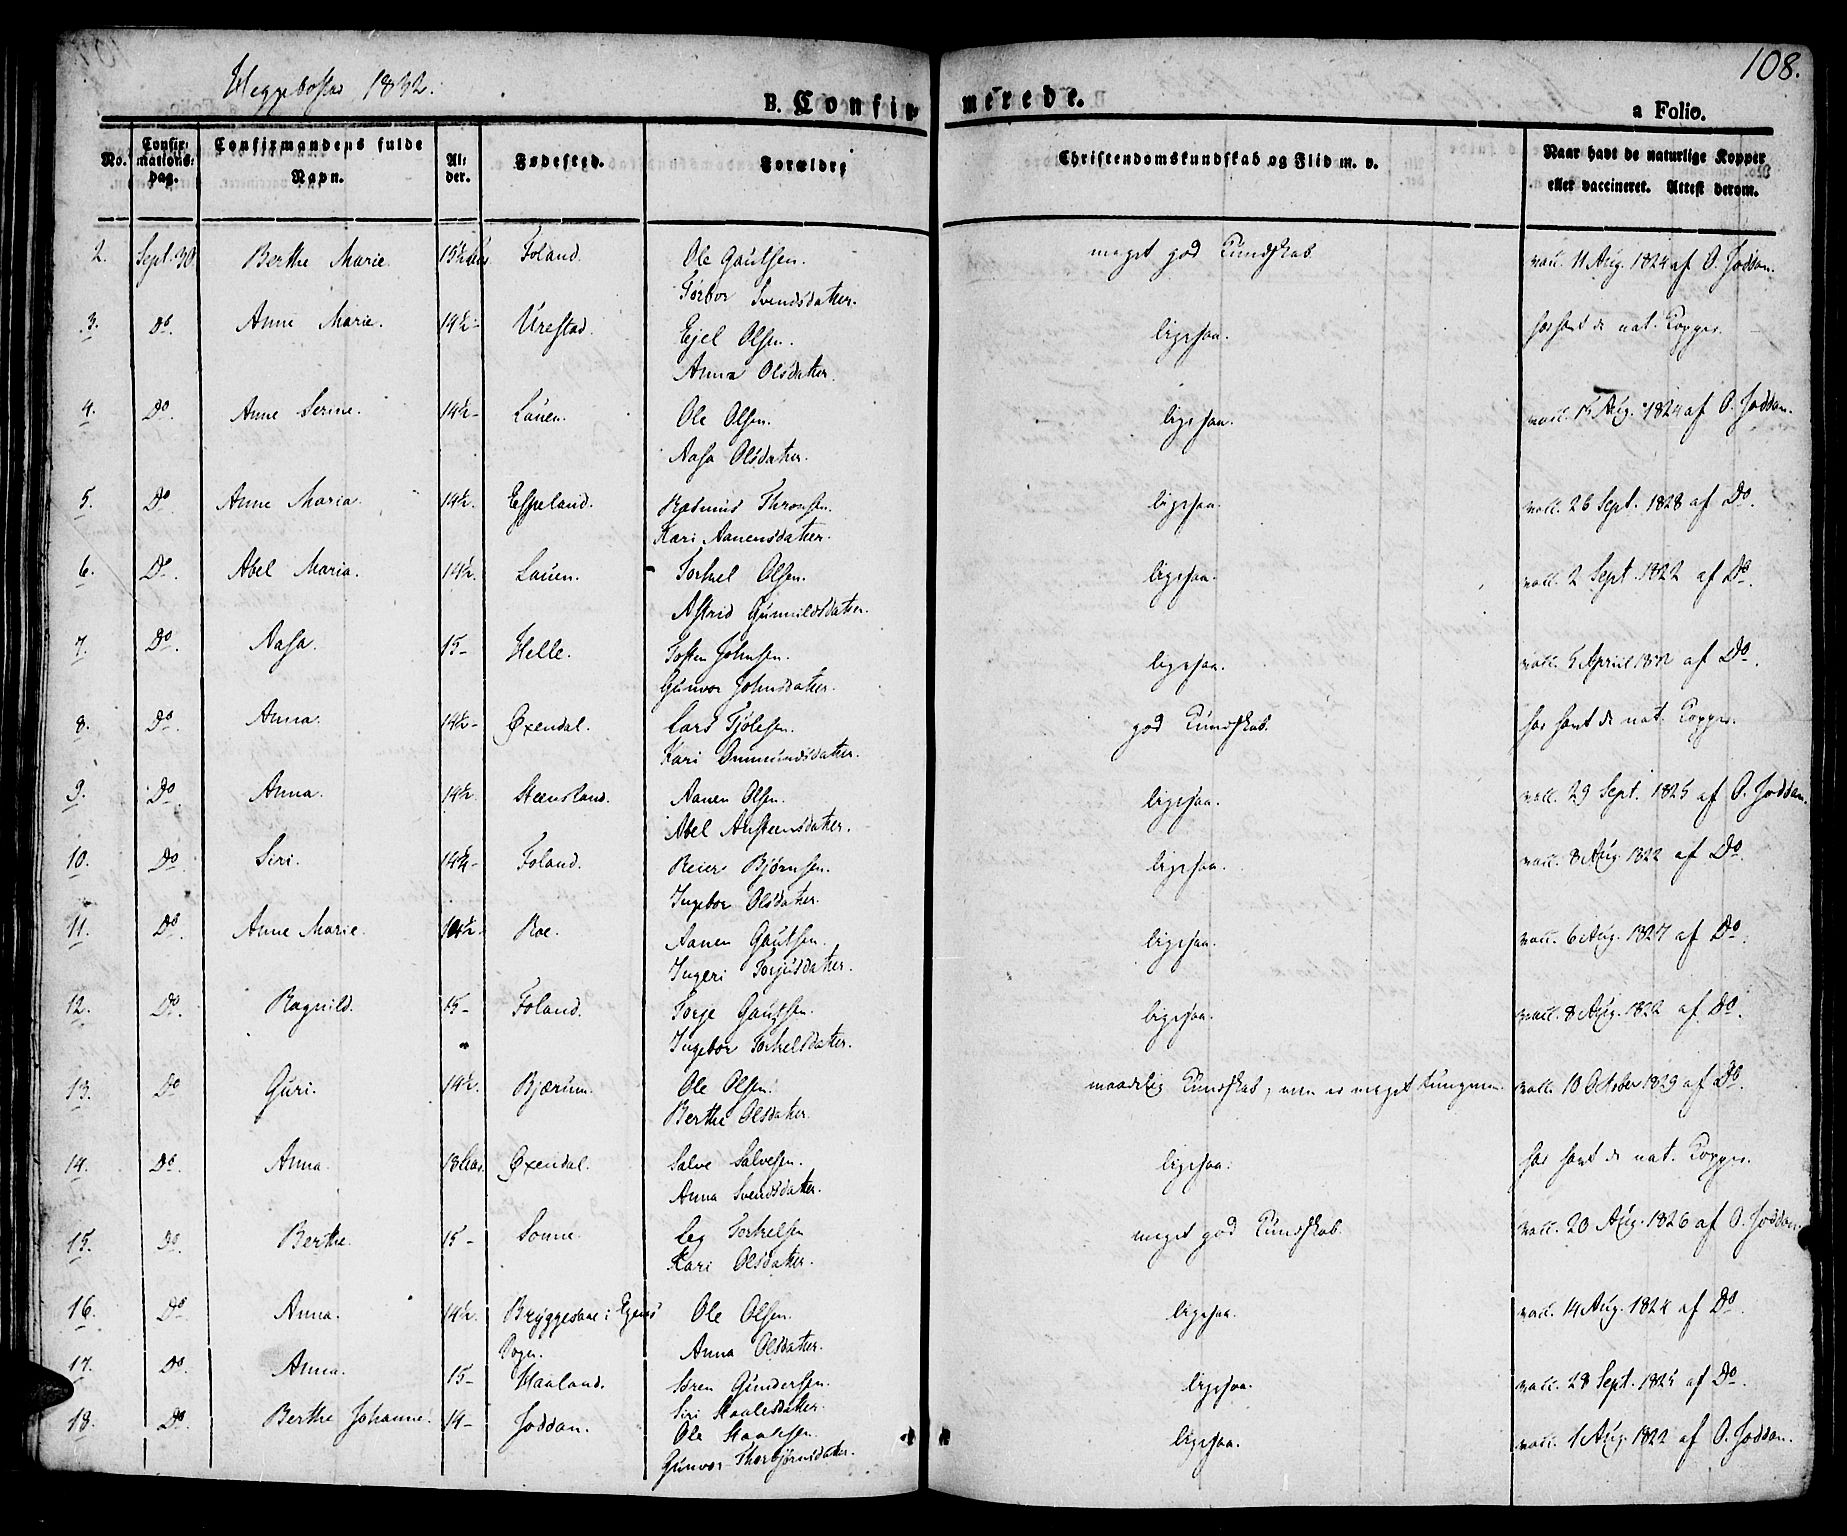 Heggebostad 1832.
108.
B. Confirmerede.
a Folio.
No. Confirmations-dag. Confirmandens fulde Navn. Alder. Fødested. Forældre Christendomskundskab og Flid m. v. Naar havt de naturlige Kopper eller vaccineret. Attest derom.
2. Sept. 30 Berthe Marie. 15½ Aar Foland. Ole Gautsen. meget god Kundskab. vacc. 11 Aug. 1824 af O. Joddan.
Torbor Svendsdatter.
3. Do. Anne Marie. 14½ - Urestad. Ejel Olsen. ligesaa. har havt de nat. Kopper.
Anna Olsdatter.
4. Do. Anne Serine. 14½ - Lauen. Ole Olsen. ligesaa. vacc. 15 Aug. 1824 af O. Joddan.
Aasa Olsdatter.
5. Do Anne Maria. 14½. Espeland. Rasmus Thronsen. ligesaa. vacc. 26 Sept. 1828 af Do.
Kari Aanensdatter.
6. Do. Abel Maria. 14½. Lauen. Torkel Olsen. ligesaa. vacc. 2 Sept. 1822 af Do.
Astrid Gunnildsdatter.
7. Do. Aasa. 15 - Helle. Tosten Johnsen. ligesaa. vacc. 5 April af Do.
Gunvor Johnsdatter.
8. Do. Anna. 14½ - Øxendal. Lars Tjølesen. god Kundskab. har havt de nat. Kopper.
Kari Ommundsdatter.
9. Do. Anna. 14½. Steensland. Aanen Olsen. ligesaa. vacc. 29 Sept. 1825 af O. Joddan.
Abel Austeensdatter.
10. Do. Siri. 14¼ - Foland. Reier Bjørnsen. ligesaa. vacc. 8 Aug. 1822 af Do.
Ingebor Olsdatter.
11. Do. Anne Marie. 14½. Roe. Aanen Gautsen. ligesaa. vacc. 6 Aug. 1827 af Do.
Ingeri Torjusdatter.
12. Do. Ragnild. 15 - Foland. Torje Gautsen. ligesaa. vacc. 8 Aug. 1822 af Do.
Ingebor Torkelsdatter.
13. Do Guri. 14½. Bjærum. Ole Olsen. maadelig Kundskab, men er meget tungnem. vacc. 10 October 1829 af Do.
Berthe Olsdatter.
14. Do. Anna. 18 Aar. Øxendal. Salve Salvesen. ligesaa. har havt de nat. Kopper.
Anna Svendsdatter.
15. Do. Berthe. 15 - Sonne. Leg Torkelsen meget god Kundskab. vacc. 20 Aug. 1826 af O. Joddan.
Kari Olsdatter.
16. Do. Anna. 14½. Bryggesaae i Egens Ole Olsen. ligesaa. vacc. 14 Aug. 1824 af Do.
Sogn. Anna Olsdatter.
17. Do. Anna. 15 - Haaland. Søren Gundersen. ligesaa. vacc. 28 Sept. 1825 af Do.
Siri Staalesdatter.
18. Do. Berthe Johanne. 19 - Joddan. Ole Staalesen. ligesaa. vacc. 1 Aug. 1822 af O. Joddan.
Gunvor Thorbjørnsdatter.